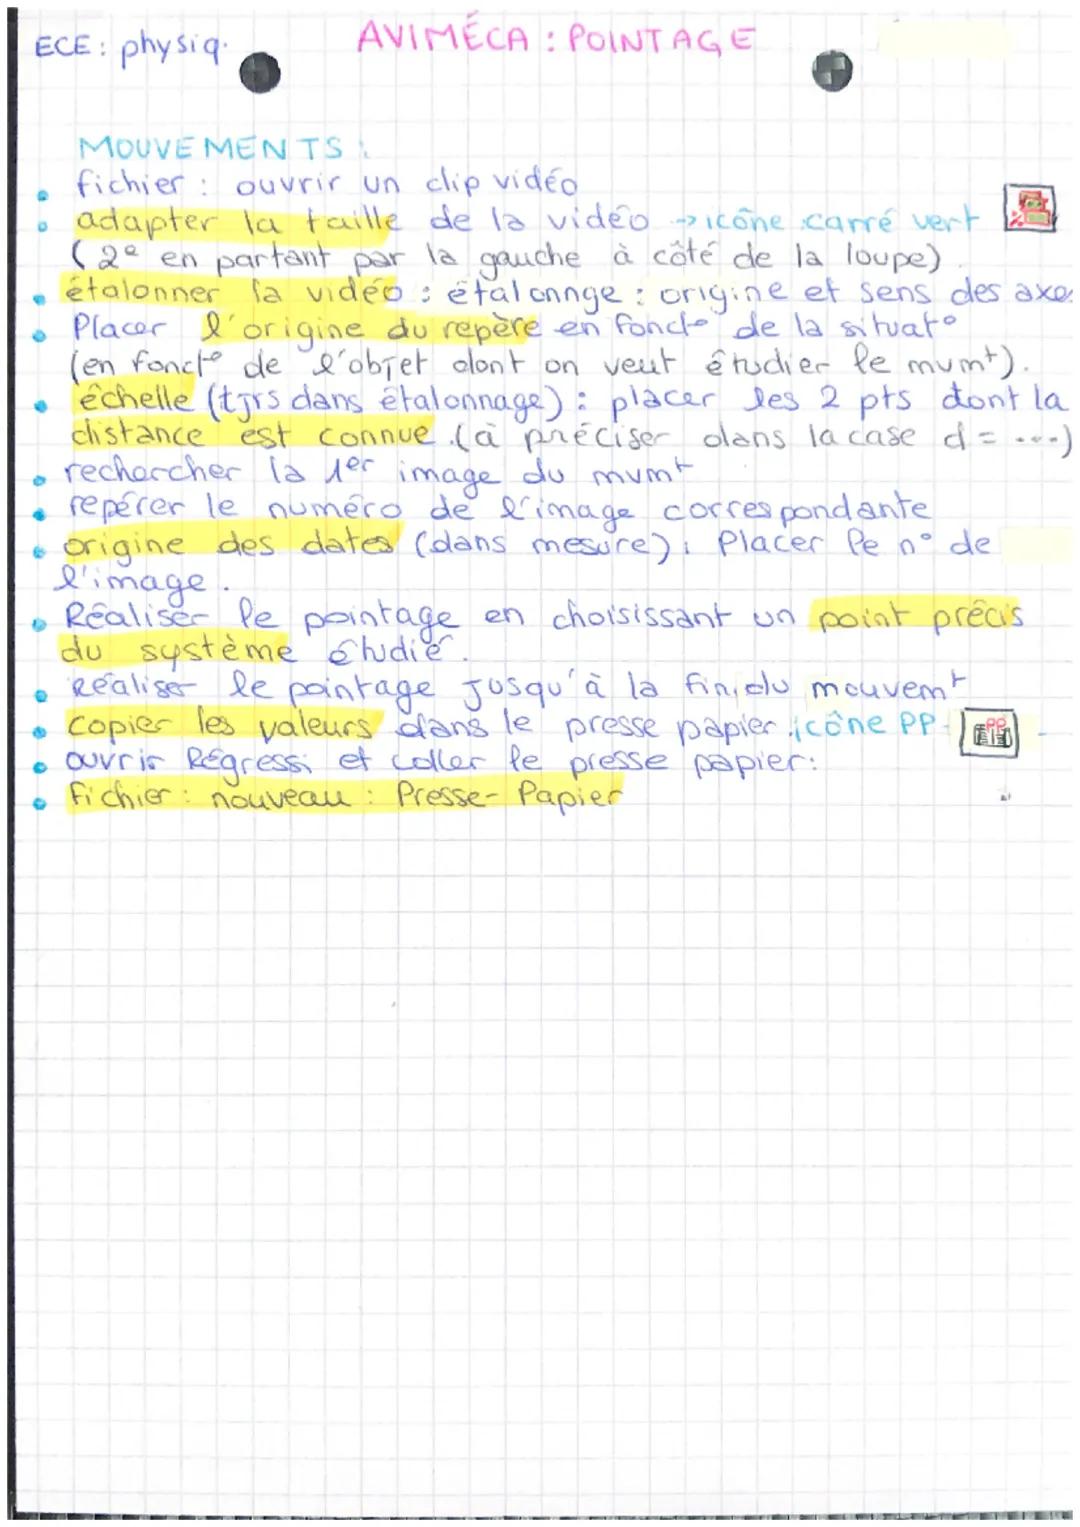 ECE : physiq.
AVIMÉCA : POINTAGE
MOUVEMENTS :
fichier : ouvrir un clip vidéo
adapter la taille de la vidéo → icône carré vert
(2e en partant par la gauche à côté de la loupe).
étalonner la vidéo : étalonnge : origine et sens des axes
Placer l'origine du repère en foncto de la situato
(en foncto de l'objet dont on veut étudier le mvmt).
échelle (tjrs dans étalonnage) : placer les 2 pts dont la
distance est connue. (à préciser dans la case d = ...)
rechercher la 1er image du mvmt
repérer le numéro de l'image correspondante
origine des dates (dans mesure) : Placer le n° de
l'image.
Réaliser le pointage en choisissant un point précis
du système étudié.
Réaliser le pointage jusqu'à la fin du mouvemt
copier les valeurs dans le presse papier : icône PP
PP
ouvrir Régressi et coller le presse papier :
fichier : nouveau : Presse-Papier